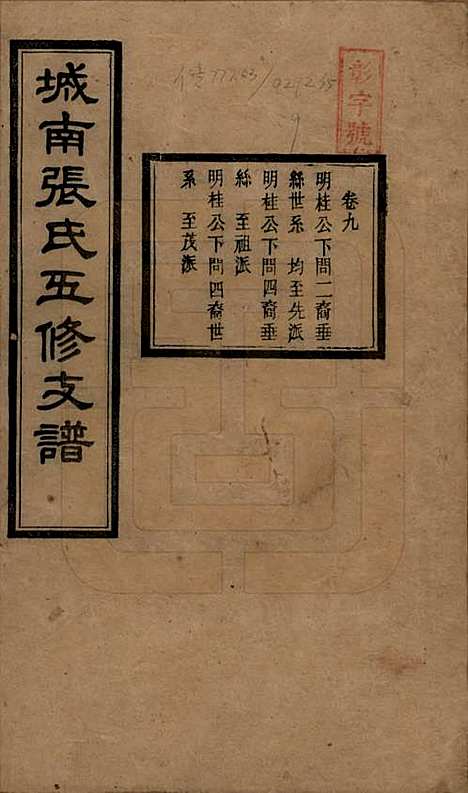 城南張氏五修支譜
卷九
明桂公下問二裔垂
絲世系　均至先派
明桂公下問四裔垂
絲　至祖派
明桂公下問四裔世
系　至茂派
彰字號
9